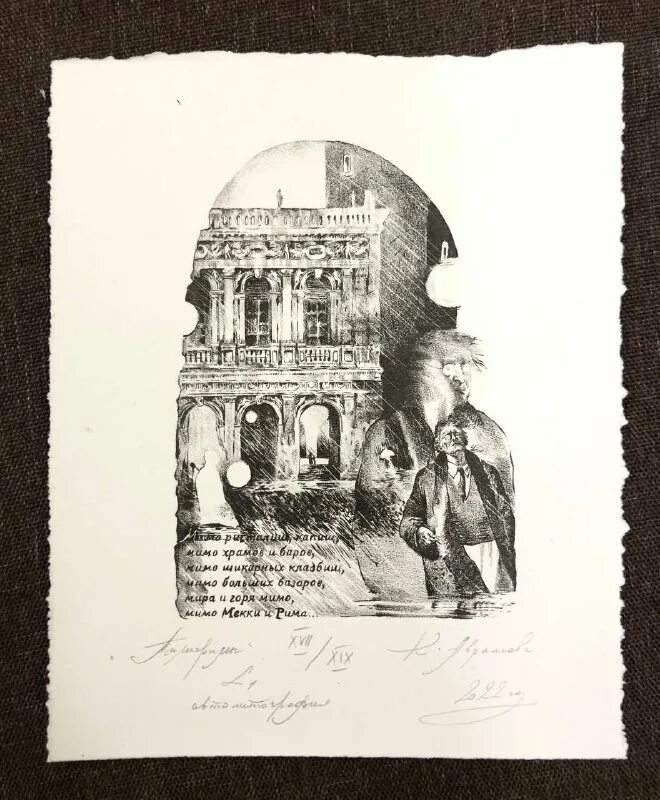 Мимо ристалищ, капищ,
мимо храмов и баров,
мимо шикарных кладбищ,
мимо больших базаров,
мира и горя мимо,
мимо Мекки и Рима...
"Пилигримы" XVII/XIX К. Аврамов
L1 2022 год
автолитография